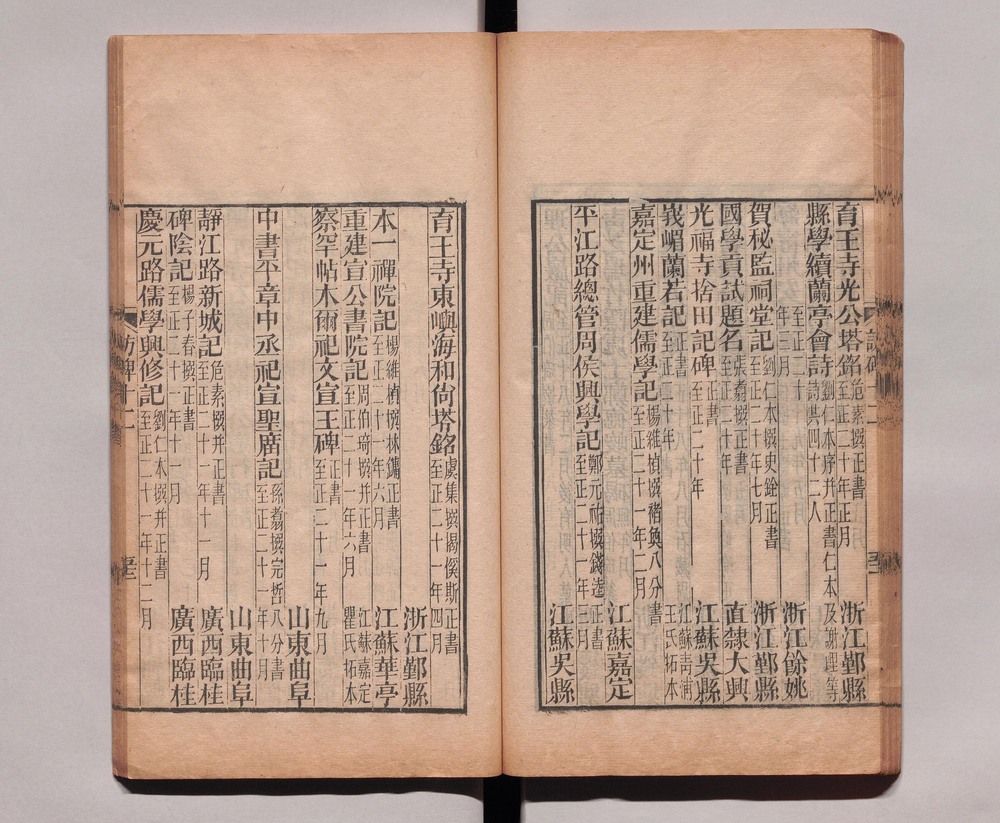 育王寺光公塔銘 危素撰正書 至正二十年正月 浙江鄞縣
縣學續蘭亭會詩 劉仁本序并正書仁本及謝理等 詩共四十二人
至正二十年三月 浙江餘姚
賀秘監祠堂記 劉仁本撰史銓正書 至正二十年七月 浙江鄞縣
國學貢試題名 張翥撰正書 至正二十年 直隸大興
光福寺捨田記碑 正書 至正二十年 江蘇吳縣
峩嵋蘭若記 正書 至正二十 江蘇青浦 王氏拓本
嘉定州重建儒學記 楊維楨撰褚奐八分書 至正二十一年二月 江蘇嘉定
平江路總管周侯興學記 鄭元祐撰錢逵正書 至正二十一年三月 江蘇吳縣
育王寺東嶼海和尙塔銘 虞集撰揭傒斯正書 至正二十一年四月
浙江鄞縣
本一禪院記 楊維楨撰林鏞正書 至正二十年六月 江蘇華亭
重建宣公書院記 周伯琦撰并正書 至正二十一年六月 江蘇嘉定 瞿氏拓本
察罕帖木爾祀文宣王碑 正書 至正二十一年九月
山東曲阜
中書平章中丞祀宣聖廟記 孫翥撰完哲八分書 至正二十一年十月
山東曲阜
靜江路新城記 危素撰并正書 至正二十一年十一月 廣西臨桂
碑陰記 楊子春撰正書 至正二十一年十一月 廣西臨桂
慶元路儒學興修記 劉仁本撰并正書 至正二十一年十二月
訪碑十二